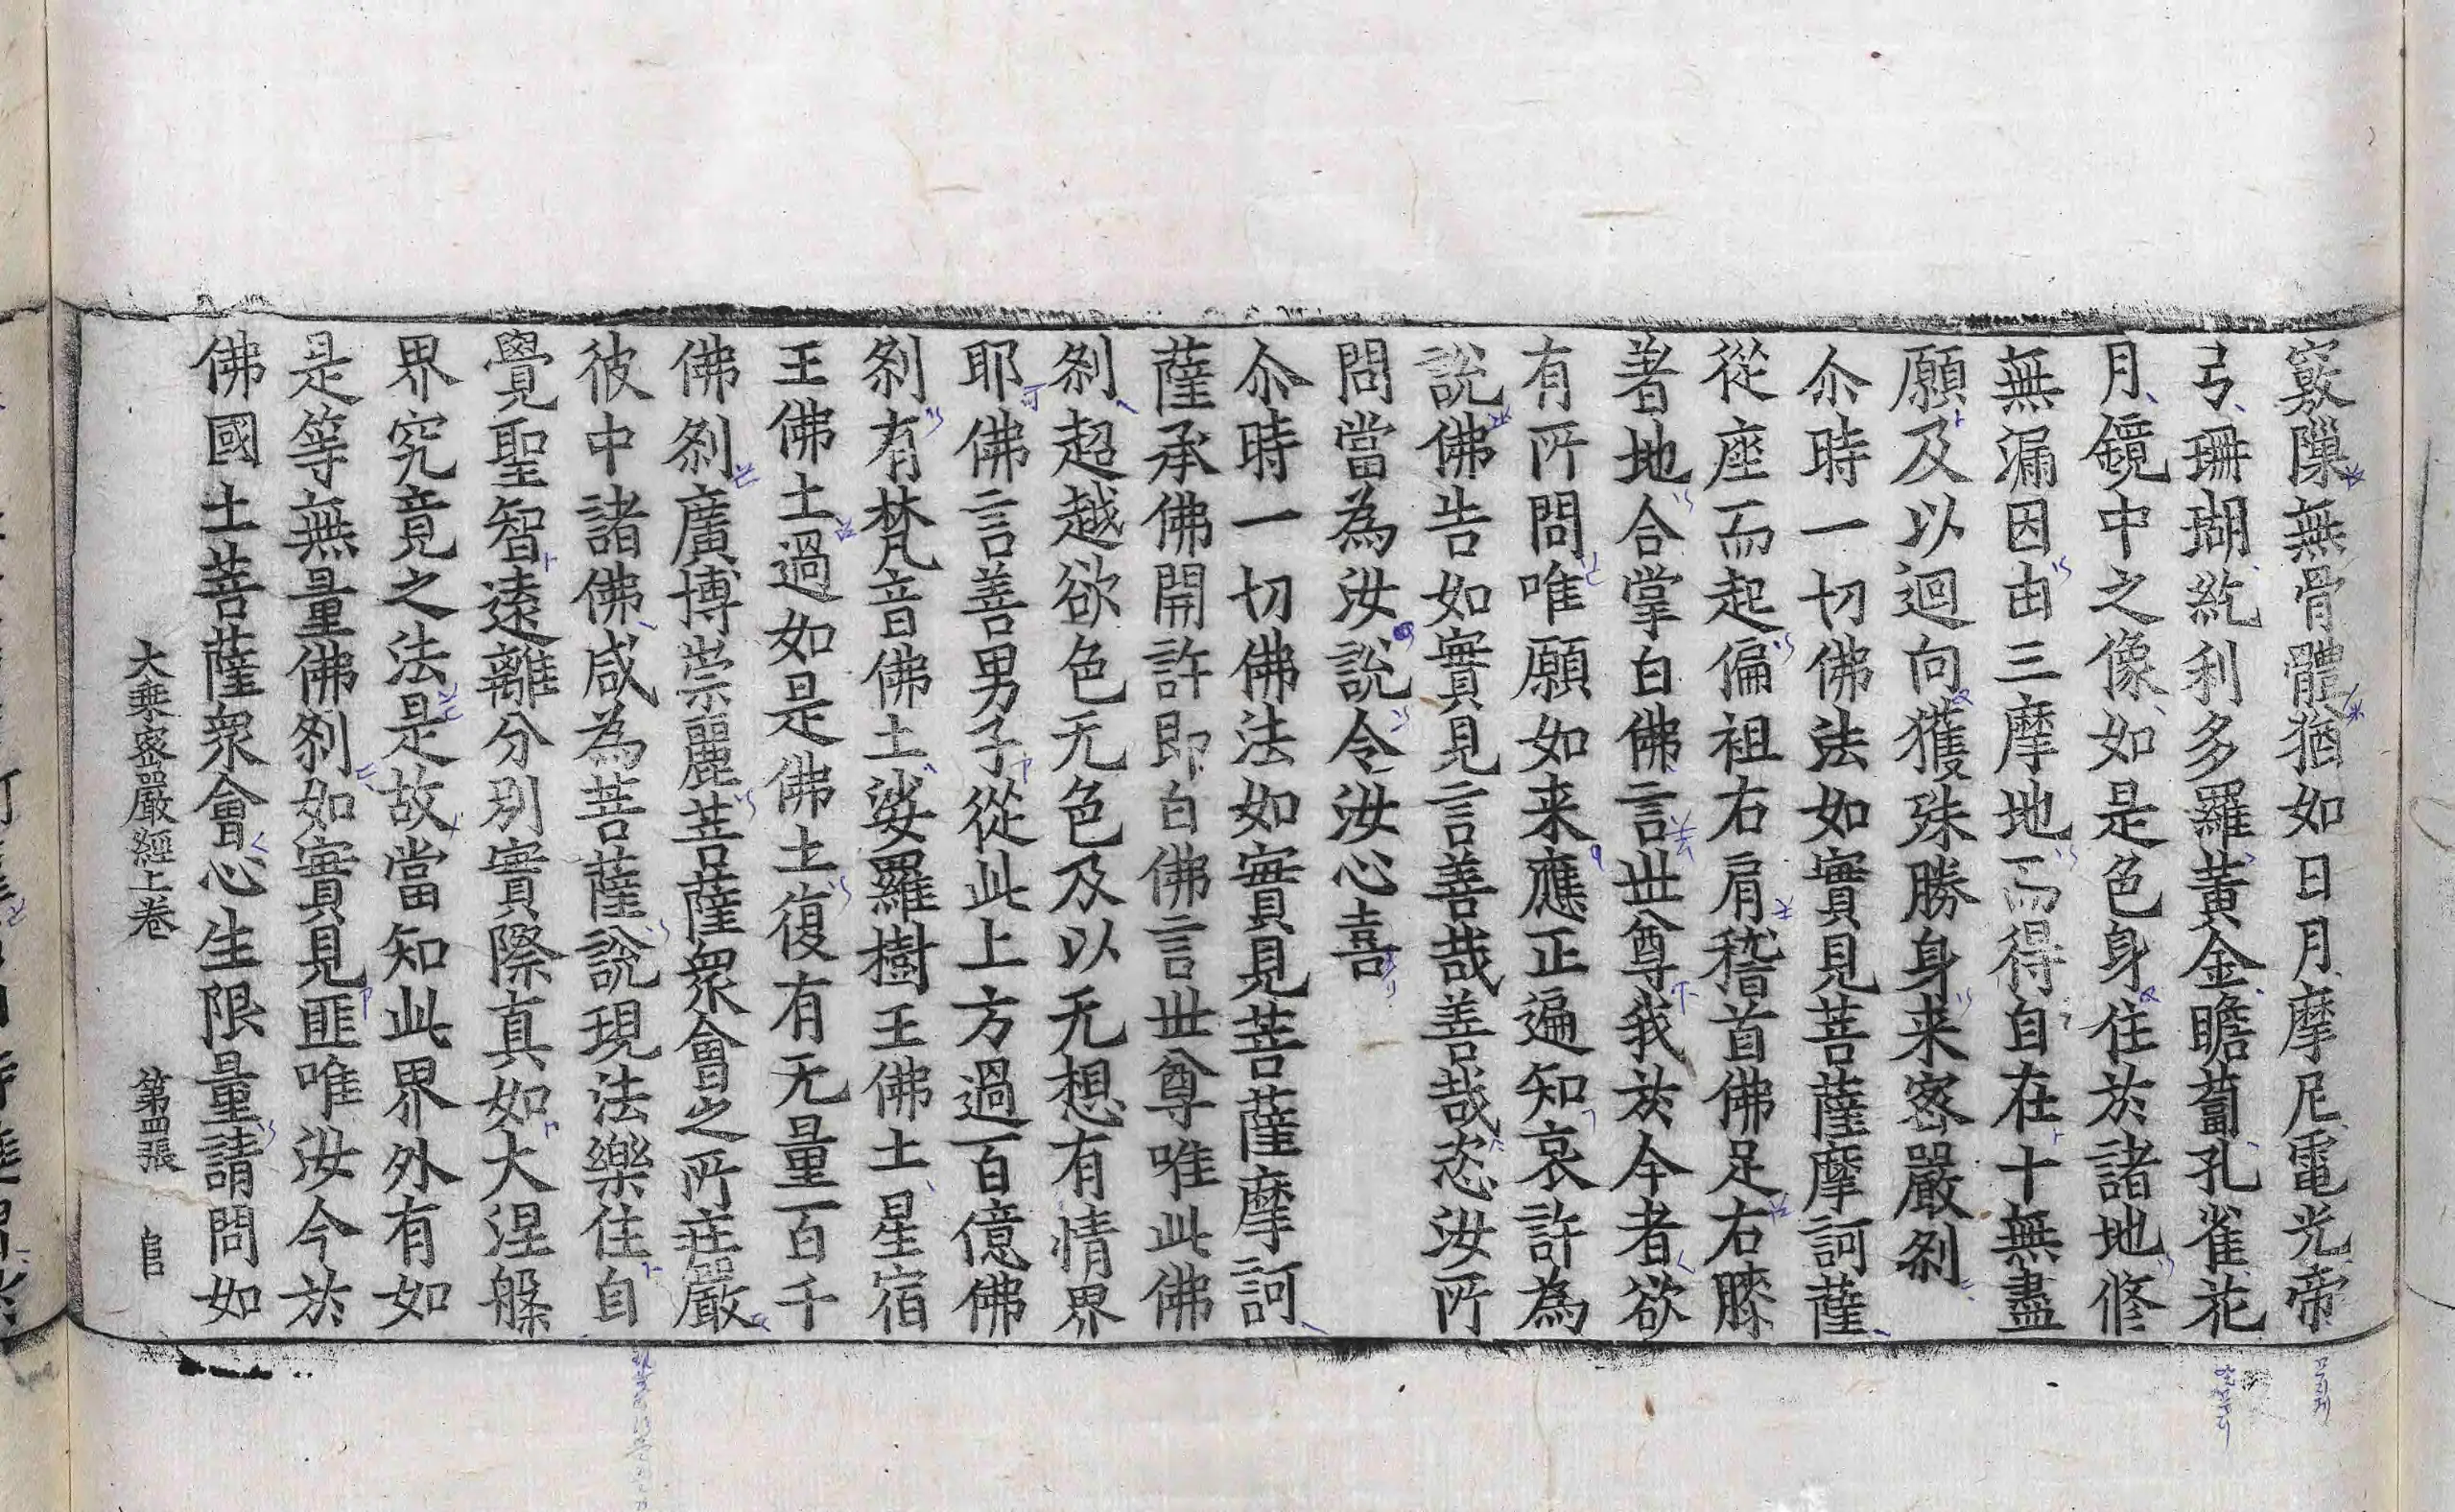 竅隟無骨體猶如日月摩尼電光帝
弓珊瑚紇利多羅黃金瞻蔔孔雀花
月鏡中之像如是色身住於諸地修
無漏因由三摩地而得自在十無盡
願及以迴向獲殊勝身来密嚴刹
尒時一切佛法如實見菩薩摩訶薩
從座而起偏袒右肩稽首佛足右膝
著地合掌白佛言世尊我於今者欲
有所問唯願如来應正遍知哀許為
說佛告如實見言善哉善哉恣汝所
問當為汝說令汝心喜
尒時一切佛法如實見菩薩摩訶
薩承佛開許即白佛言世尊唯此佛
刹超越欲色无色及以无想有情界
耶佛言善男子從此上方過百億佛
刹有梵音佛土娑羅樹王佛土星宿
王佛土過如是佛土復有无量百千
佛刹廣博崇麗菩薩衆會之所莊嚴
彼中諸佛咸為菩薩說現法樂住自
覺聖智遠離分別實際真如大涅槃
界究竟之法是故當知此界外有如
是等無量佛刹如實見匪唯汝今於
佛國土菩薩衆會心生限量請問如
大乘密嚴經上卷 第四張